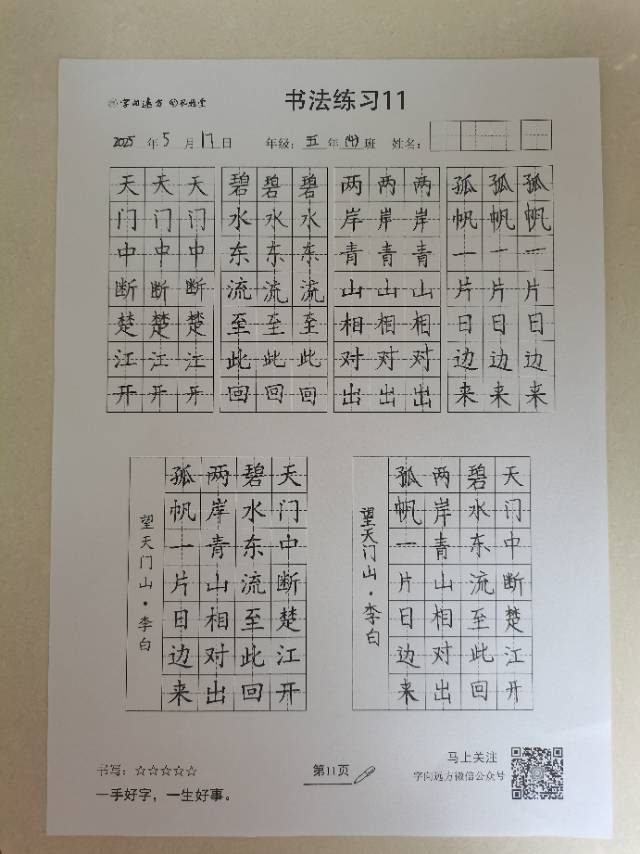 字向远方
书法练习11
2025年5月17日 年级：五年(4)班 姓名：
天天天 碧碧碧 两两两 孤孤孤
门门门 水水水 岸岸岸 帆帆帆
中中中 东东东 青青青 一一一
断断断 流流流 山山山 片片片
楚楚楚 至至至 相相相 日日日
江江江 此此此 对对对 边边边
开开开 回回回 出出出 来来来
天门中断楚江开
碧水东流至此回
两岸青山相对出
孤帆一片日边来
望天门山·李白
天门中断楚江开
碧水东流至此回
两岸青山相对出
孤帆一片日边来
望天门山·李白
书写：☆☆☆☆☆
一手好字，一生好事。
第11页
马上关注
字向远方微信公众号